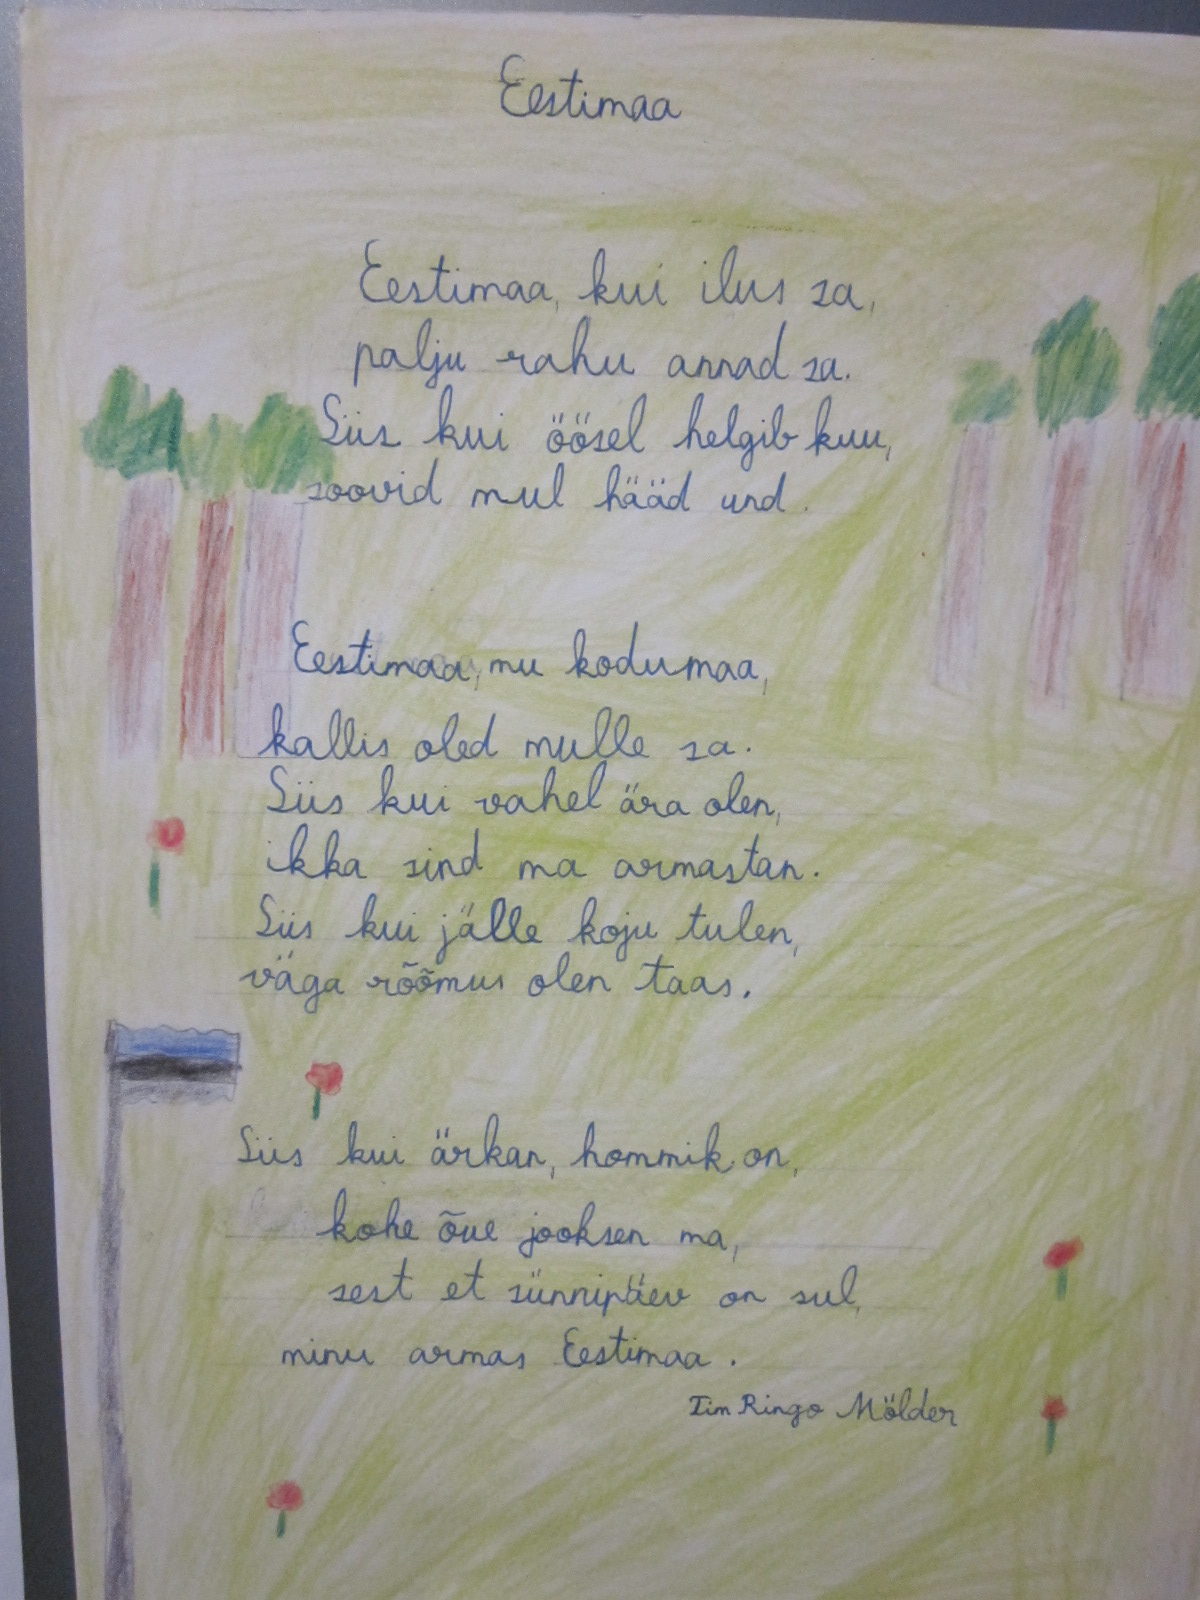 Eestimaa
Eestimaa, kui ilus sa,
palju rahu annad sa.
Siis kui öösel helgib kuu,
soovid mul hääd und.
Eestimaa, mu kodumaa,
kallis oled mulle sa.
Siis kui vahel ära olen,
ikka sind ma armastan.
Siis kui jälle koju tulen,
väga rõõmus olen taas.
Siis kui ärkan, hommik on,
kohe õue jooksen ma,
sest et sünnipäev on sul,
minu armas Eestimaa.
Tim Ringo Mölder